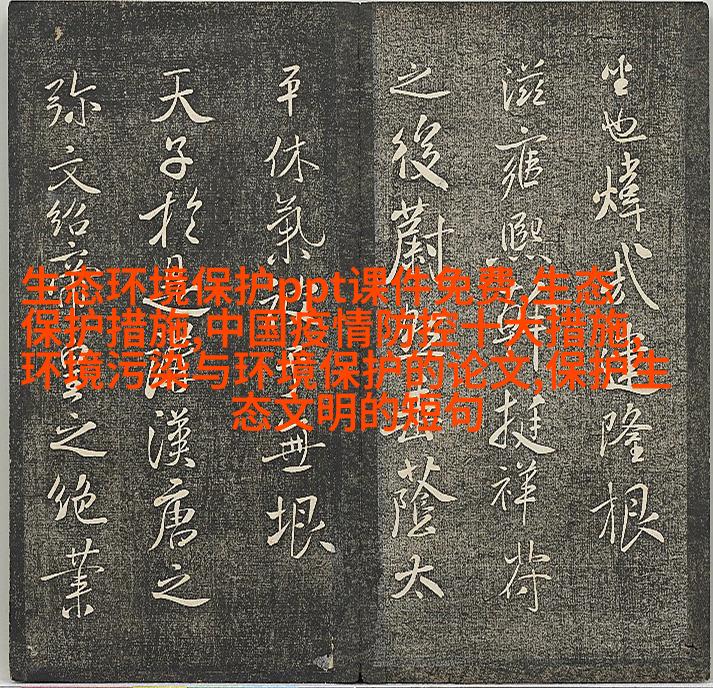 生态环境保护ppt课件免费,生态
保护措施,中国疫情防控十大措施,
环境污染与环境保护的论文,保护生
态文明的短句
也煒哉建隆根
滋雍熙斯挺祥符
之後蔚蔭太
平休氣無垠
天子於是漢唐之
弥文紹之绝業